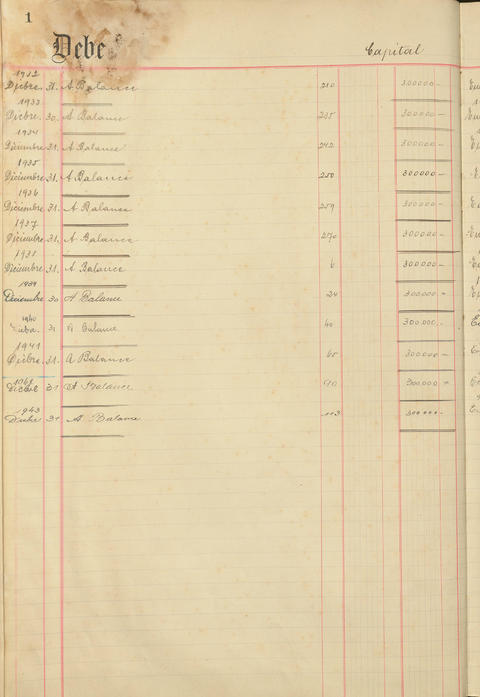 1
Debe Capital
1932
Dicbre. 31. A Balance 210 300000 -
1933
Dicbre. 30. A Balance 235 300000 -
1934
Diciembre 31. A Balance 242 300000 -
1935
Diciembre 31. A Balance 250 300000 -
1936
Diciembre 31. A Balance 259 300000 -
1937
Diciembre 31. A Balance 270 300000 -
1938
Diciembre 31. A Balance 6 300000 -
1939
Diciembre 30 A Balance 24 300000 -
1940
31 A Balance 40 300.000.-
1941
Dicbre. 31. A Balance 65 300000 -
31 A Balance 90 300000 -
943
Dicbre 31 A Balance 113 300000 -